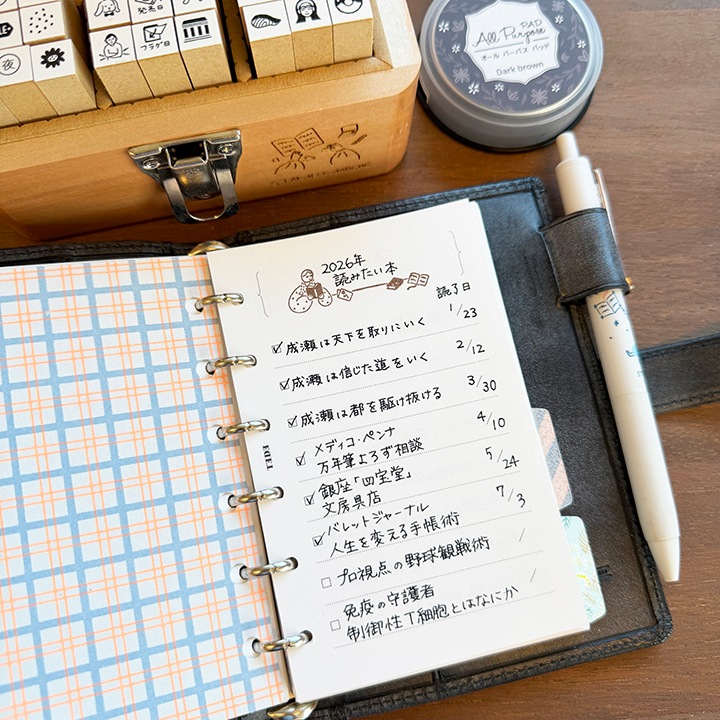 発売日
フラゲ日
夜
All Purpose
PAD
オール パーパス パッド
Dark brown
2026年
読みたい本
読了日
☑ 成瀬は天下を取りにいく 1/23
☑ 成瀬は信じた道をいく 2/12
☑ 成瀬は都を駆け抜ける 3/30
☑ メディコ・ペンナ
万年筆よろず相談 4/10
☑ 銀座「四宝堂」
文房具店 5/24
☑ バレットジャーナル
人生を変える手帳術 7/3
□ プロ視点の野球観戦術 /
□ 免疫の守護者
制御性T細胞とはなにか /